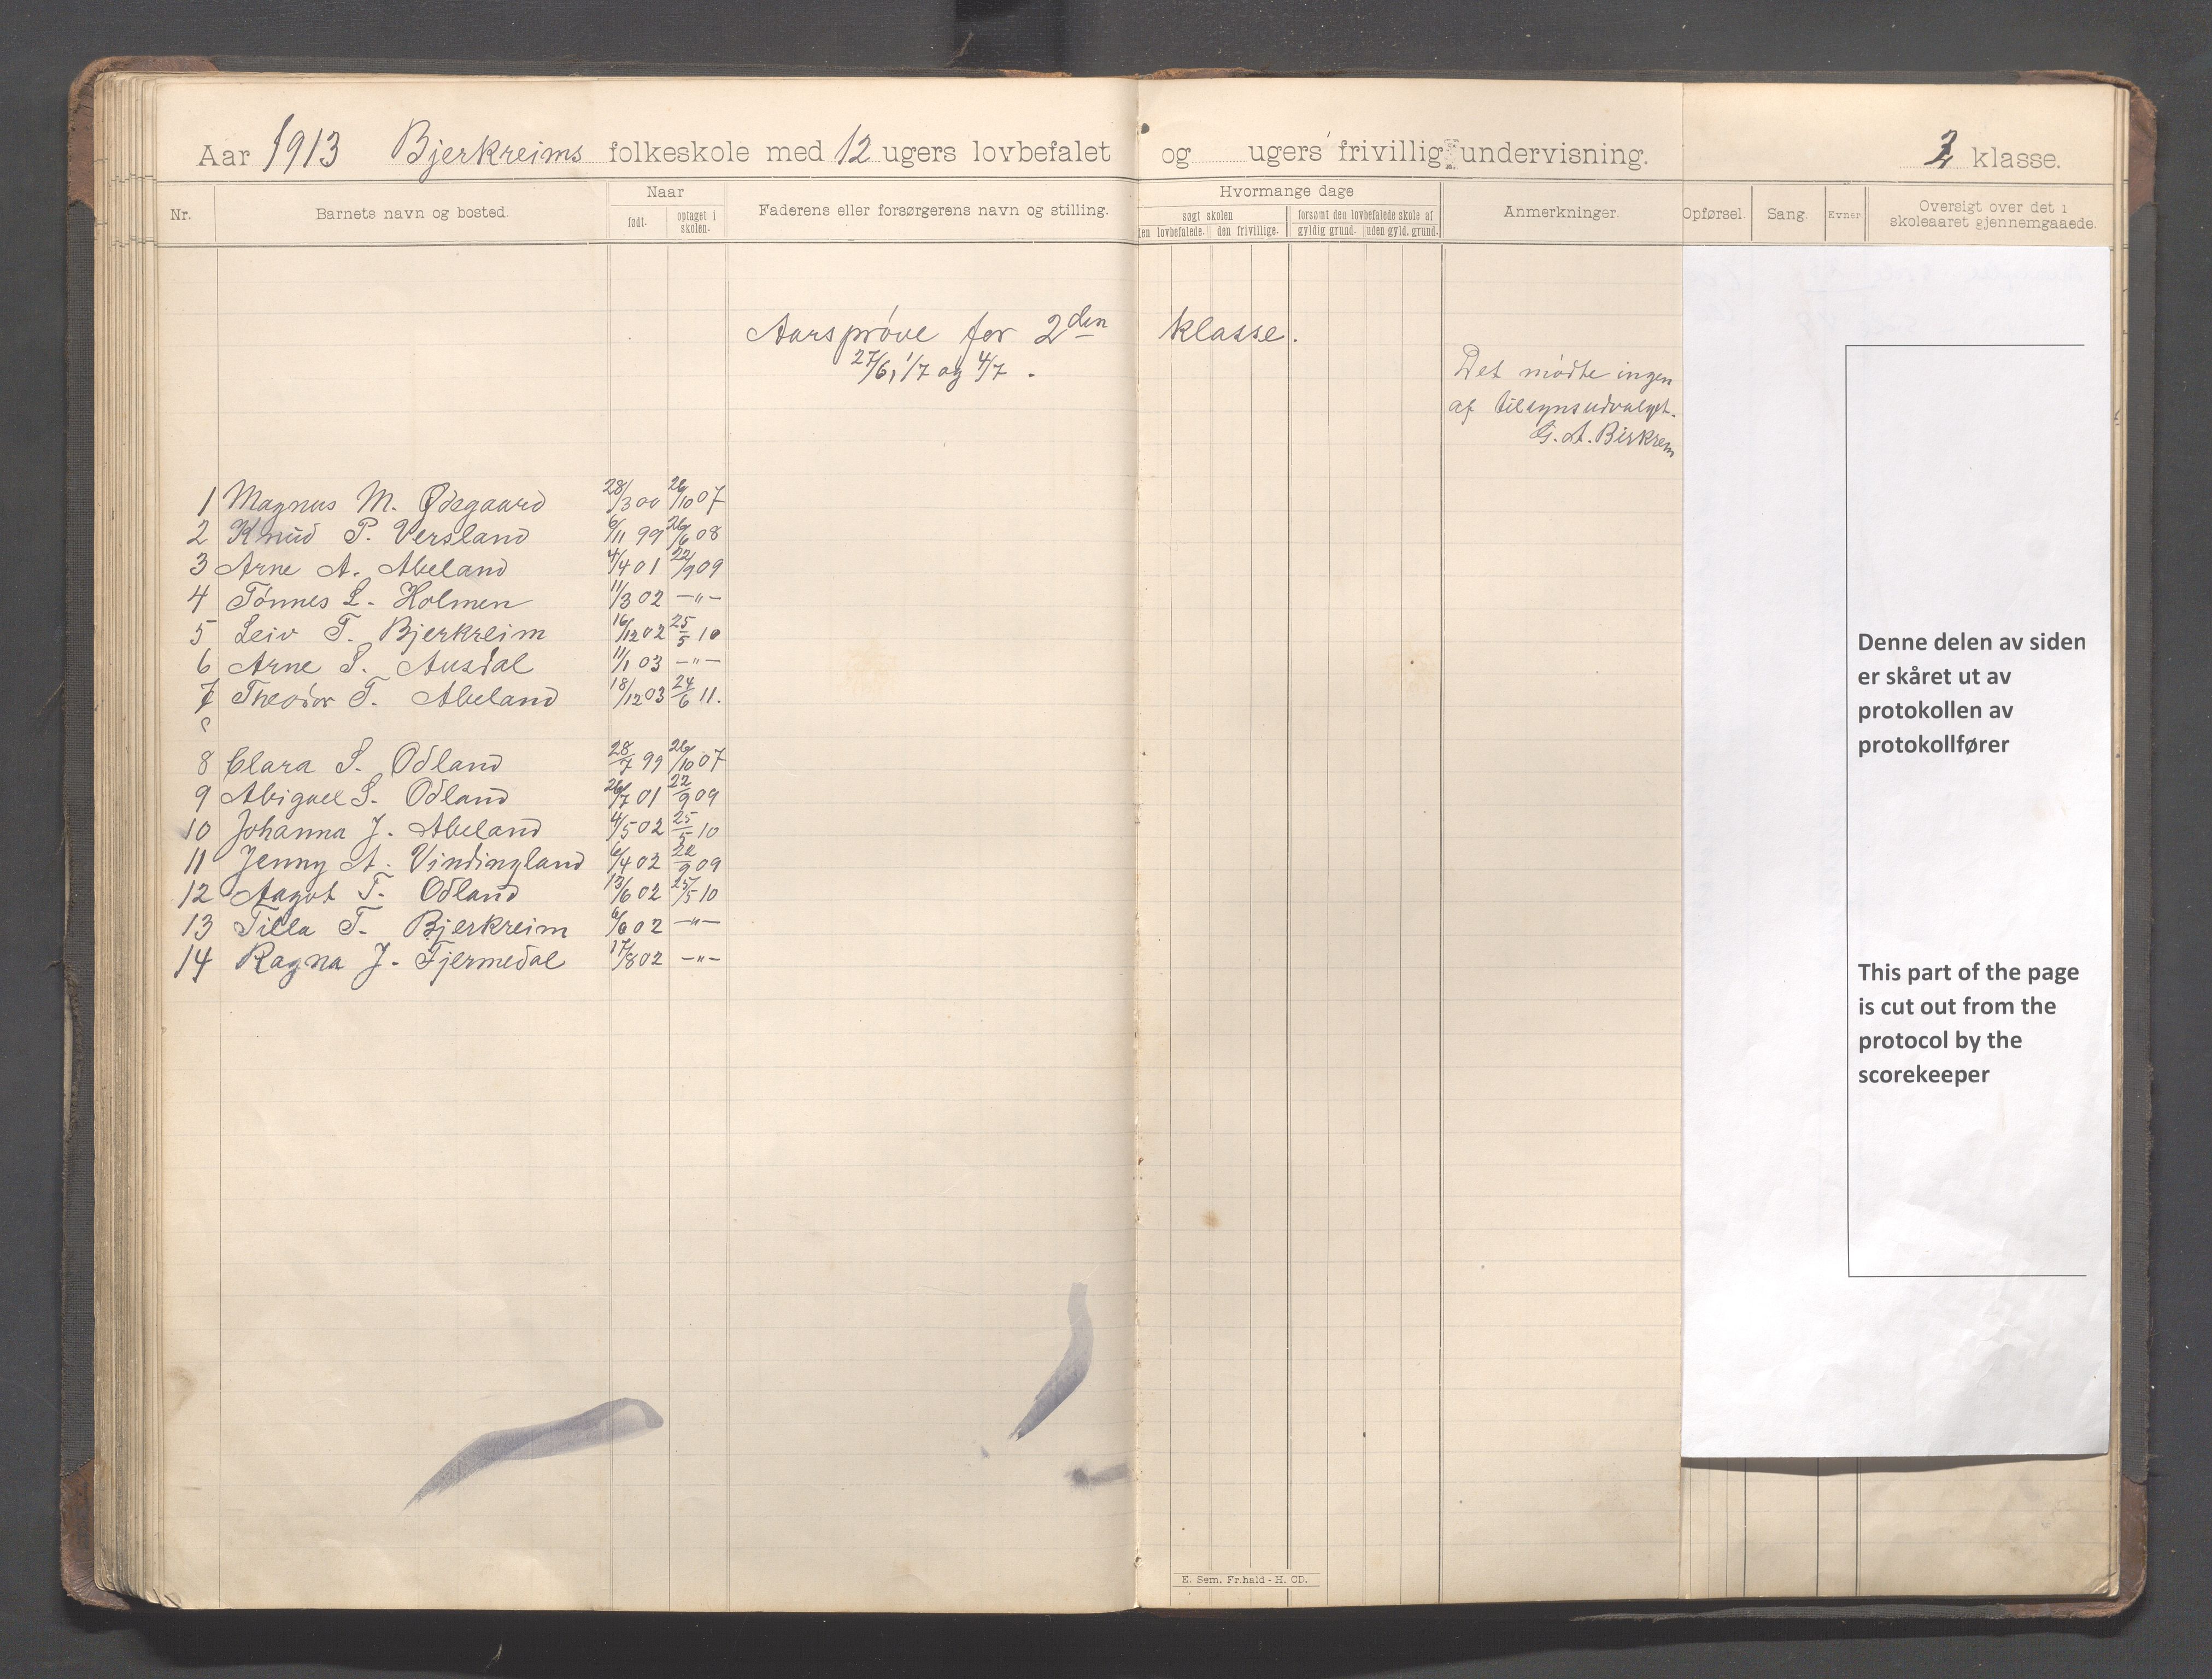 Aar 1913 Bjerkreims folkeskole med 12 ugers lovbefalet og ugers frivillig undervisning. klasse.
Nr. Barnets navn og bosted. Naar født. optaget i skolen. Faderens eller forsørgerens navn og stilling.
Hvormange dage søgt skolen den lovbefalede. den frivillige. forsømt den lovbefalede skole af gyldig grund. uden gyld. grund. Anmerkninger. Opførsel. Sang. Evner Oversigt over det i skoleaaret gjennemgaaede.
Aarsprøve for 2den klasse.
27/6, 1/7 og 4/7.
Det mødte ingen
af tilsynsudvalget.
G. A. Birkrem
1 Magnus M. Ødegaard 28/3 00 26/10 07
2 Knud P. Versland 6/11 99 26/6 08
3 Arne A. Abeland 4/4 01 22/9 09
4 Tønnes L. Holmen 11/3 02 —"—
5 Leiv T. Bjerkreim 16/12 02 25/5 10
6 Arne S. Ausdal 11/1 03 —"—
7 Theodor T. Abeland 18/12 03 24/6 11.
8 Clara S. Odland 28/7 99 26/10 07
9 Abigael S. Odland 26/7 01 22/9 09
10 Johanna J. Abeland 4/5 02 25/5 10
11 Jenny A. Vindingland 6/4 02 22/9 09
12 Aagot T. Odland 13/6 02 25/5 10
13 Tilla T. Bjerkreim 6/6 02 —"—
14 Ragna J. Fjermedal 17/8 02 —"—
Denne delen av siden
er skåret ut av
protokollen av
protokollfører
This part of the page
is cut out from the
protocol by the
scorekeeper
E. Sem, Fr.hald - H. CD.